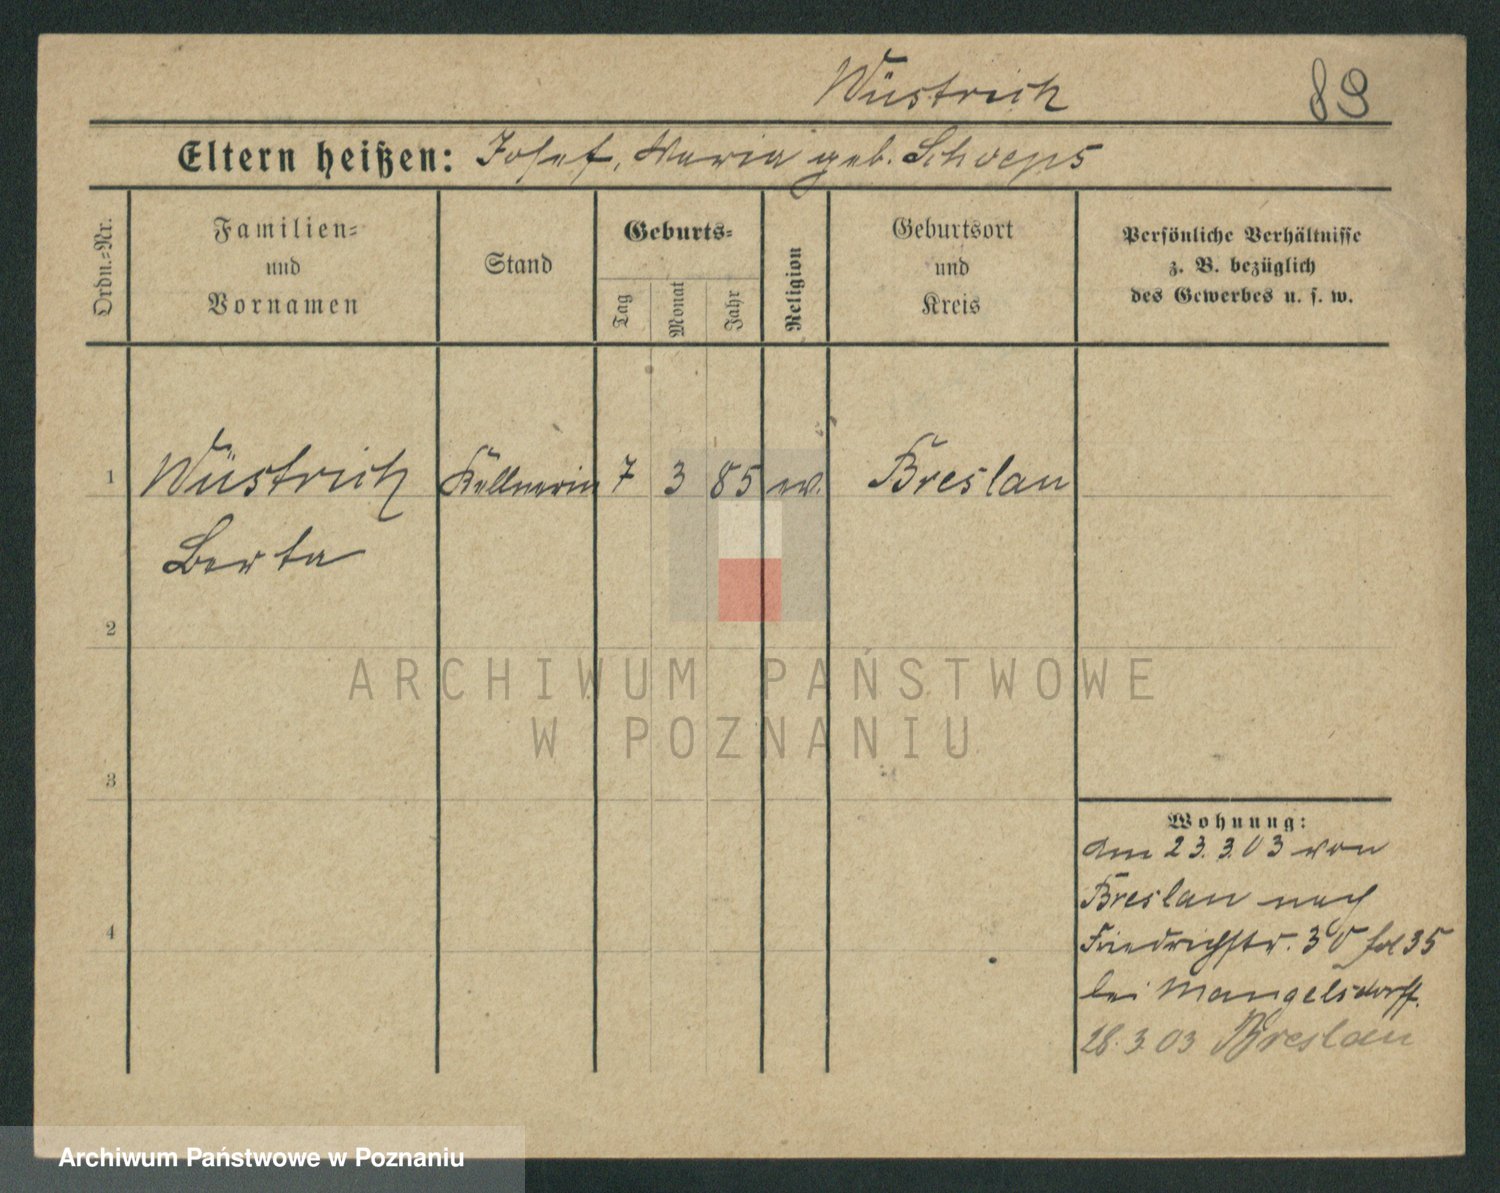 Wüstrich
89
Eltern heißen: Josef, Maria geb. Schoeps
Ordn.-Nr.
Familien-
und
Vornamen
Stand
Geburts-
Tag
Monat
Jahr
Religion
Geburtsort
und
Kreis
Persönliche Verhältnisse
z. B. bezüglich
des Gewerbes u. s. w.
1 Wüstrich Kellnerin 7 3 85 ev. Breslau
Berta
2
ARCHIWUM PAŃSTWOWE
W POZNANIU
3
Wohnung:
am 23.3.03 von
Breslau nach
4
Friedrichstr. 30 fol 35
bei Mangelsdorff.
28.3.03 Breslau
Archiwum Państwowe w Poznaniu